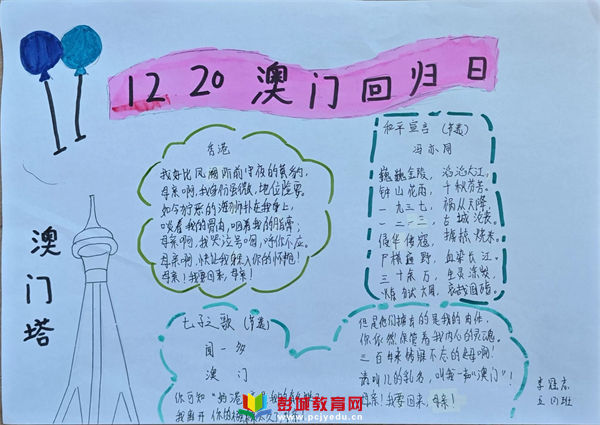 12 20 澳门回归日
香港
我好比凤阙阶前守夜的黄豹,
母亲啊,我身份虽微,地位险要。
如今狞恶的海狮扑在我身上,
啖着我的骨肉,咽着我的脂膏;
母亲啊,我哭泣号啕,呼你不应。
母亲啊,快让我躲入你的怀抱!
母亲!我要回来,母亲!
和平宣言 (节选)
冯亦同
巍巍金陵, 滔滔大江,
钟山花雨, 千秋芬芳。
一九三七, 祸从天降
一二一三, 古城沦丧。
侵华倭寇, 掳掠烧杀。
尸横遍野, 血染长江。
三十余万, 生灵涂炭
炼狱六周, 哀哉国殇。
澳门塔
七子之歌 (节选)
闻一多
澳门
你可知"妈港"
我离开你
但是他们掳去的是我的肉体,
你依然保管着我内心的灵魂。
三百年来梦寐不忘的生母啊!
请叫儿的乳名,叫我一声"澳门"!
母亲!我要回来,母亲!
五(1)班
彭城教育网
www.pcjyedu.cn